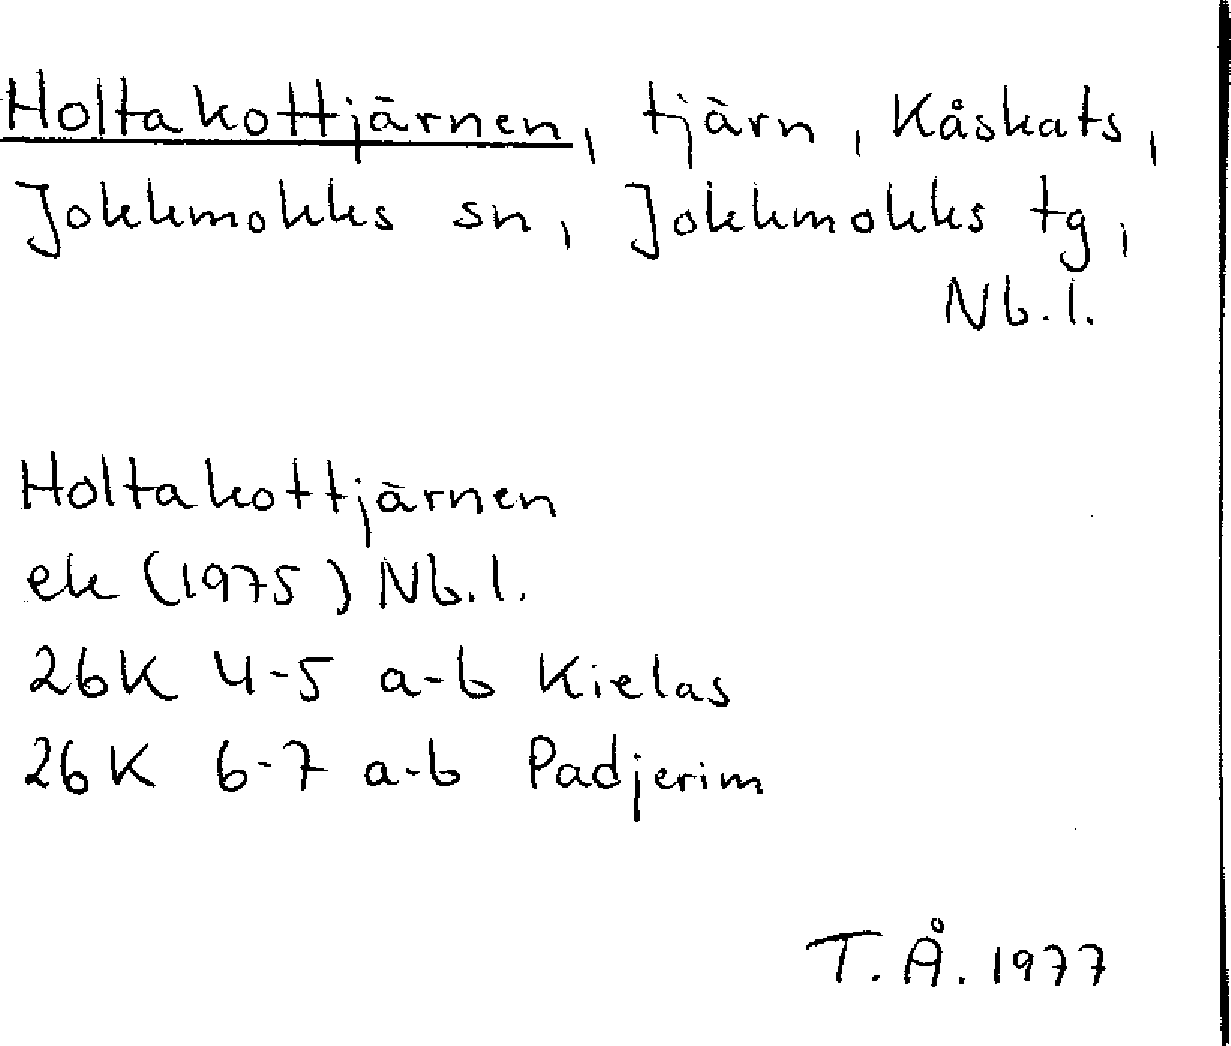 Holtakottjärnen, tjärn, Kåskats,
Jokkmokks sn, Jokkmokks tg,
Nb.l.
Holtakottjärnen
ek (1975) Nb.l.
26K 4-5 a-b Kielas
26K 6-7 a-b Padjerim
T.Å. 1977